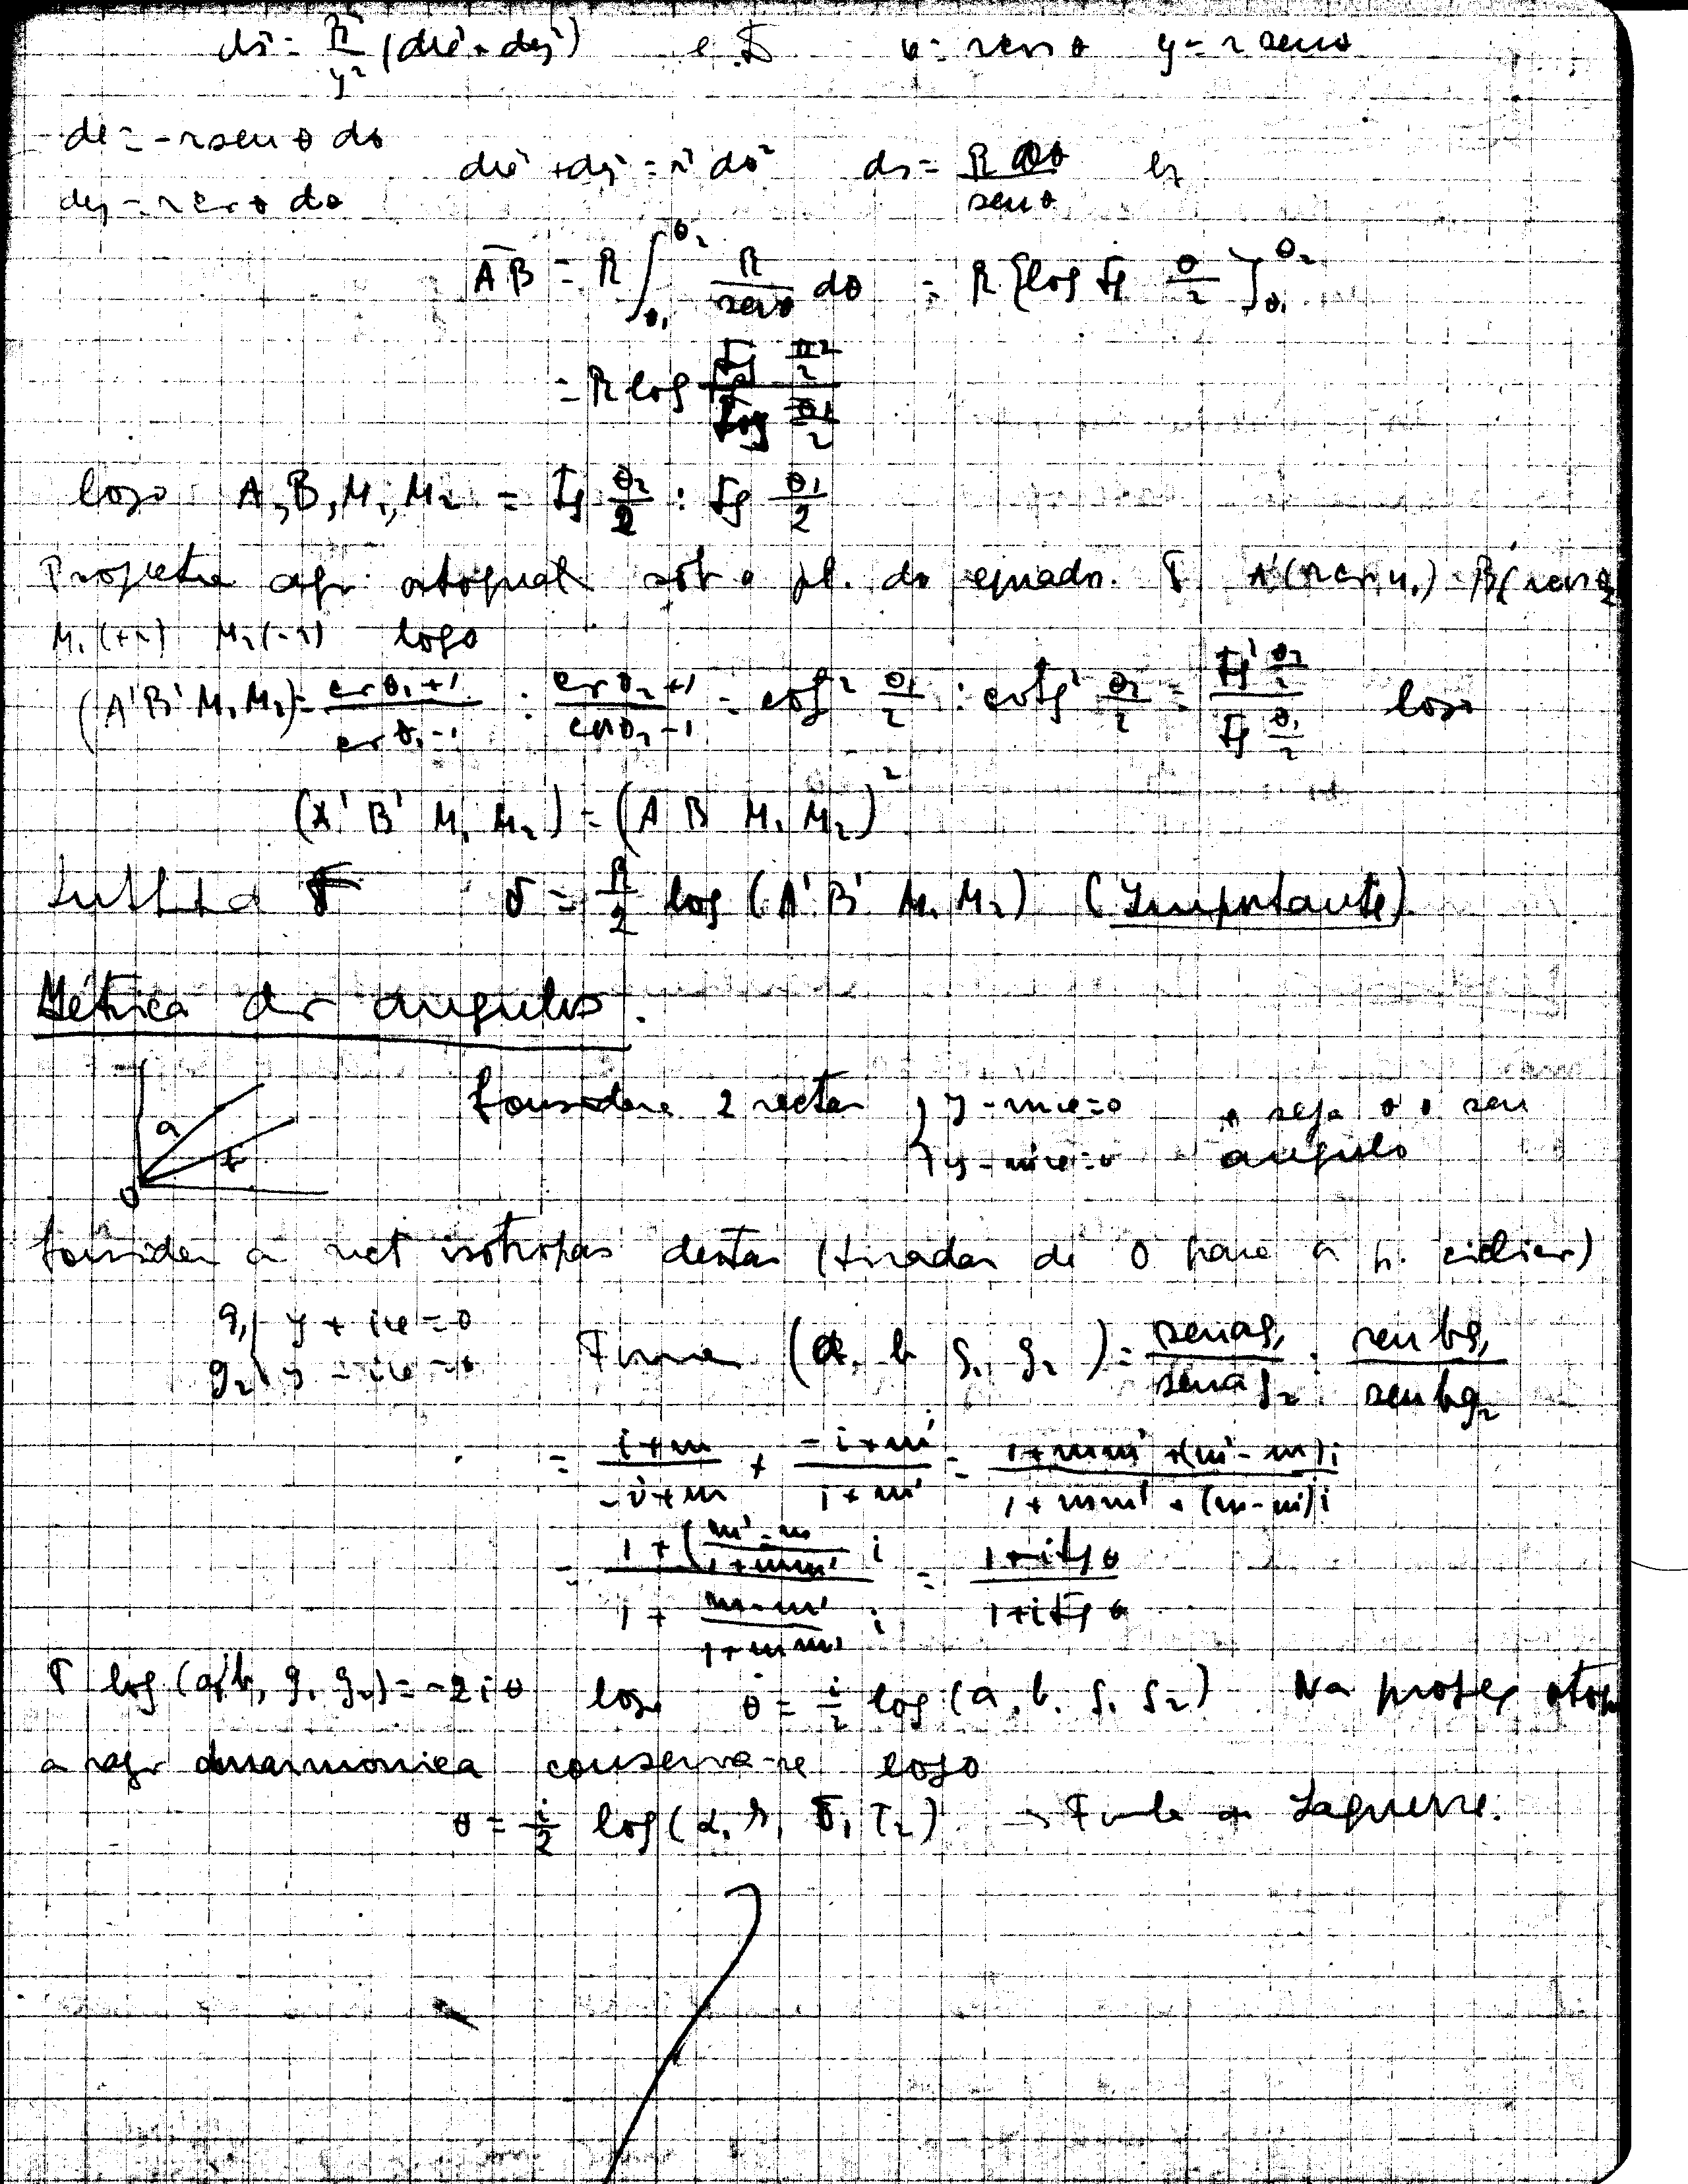 ds² = R²/y² (dx² + dy²) e x = r cos θ y = r sen θ
dx = - r sen θ dθ
dx² + dy² = r² dθ² ds = R dθ / sen θ
dy = r cos θ dθ
AB = R ∫θ₁^θ₂ R/sen θ dθ = R [log tg θ/2]θ₁^θ₂
= R log
logo A, B, M₁, M₂ = tg θ₂/2 : tg θ₁/2
Projecta ortogonal sôb o pl. do A'(r cos θ₁) B'(r cos θ₂
M₁(+r) M₂(-r) logo
(A'B'M₁M₂) = cos θ₁+1 / cos θ₁-1 : cos θ₂+1 / cos θ₂-1 = cotg² θ₁/2 : cotg² θ₂/2 = tg² θ₂/2 / tg² θ₁/2 logo
(A' B' M₁ M₂) = (A B M₁ M₂)²
δ = R/2 log (A' B' M₁ M₂) (Importante)
Métrica dos angulos.
a
O
Considere 2 rectas { y - mx = 0 e seja θ o seu
{ y - m'x = 0 angulo
Consider as rect isotropas destas (tiradas de O para os p. ciclicos)
g₁ { y + ix = 0
g₂ { y - ix = 0 (a, b g₁ g₂) = sen ag₁ / sen ag₂ : sen bg₁ / sen bg₂
= i+m / -i+m × -i+m' / i+m' = 1+mm' +(m'-m)i / 1+mm' + (m-m')i
= 1 + (m'-m / 1+mm' i / 1 + m-m' / 1+mm' i = 1+i tg θ / 1+i tg θ
log (a, b, g₁ g₂) = -2iθ logo θ = i/2 log (a, b, g₁ g₂) Na projeç
a raz anarmonica conserva-se logo
θ = i/2 log( Laguerre.